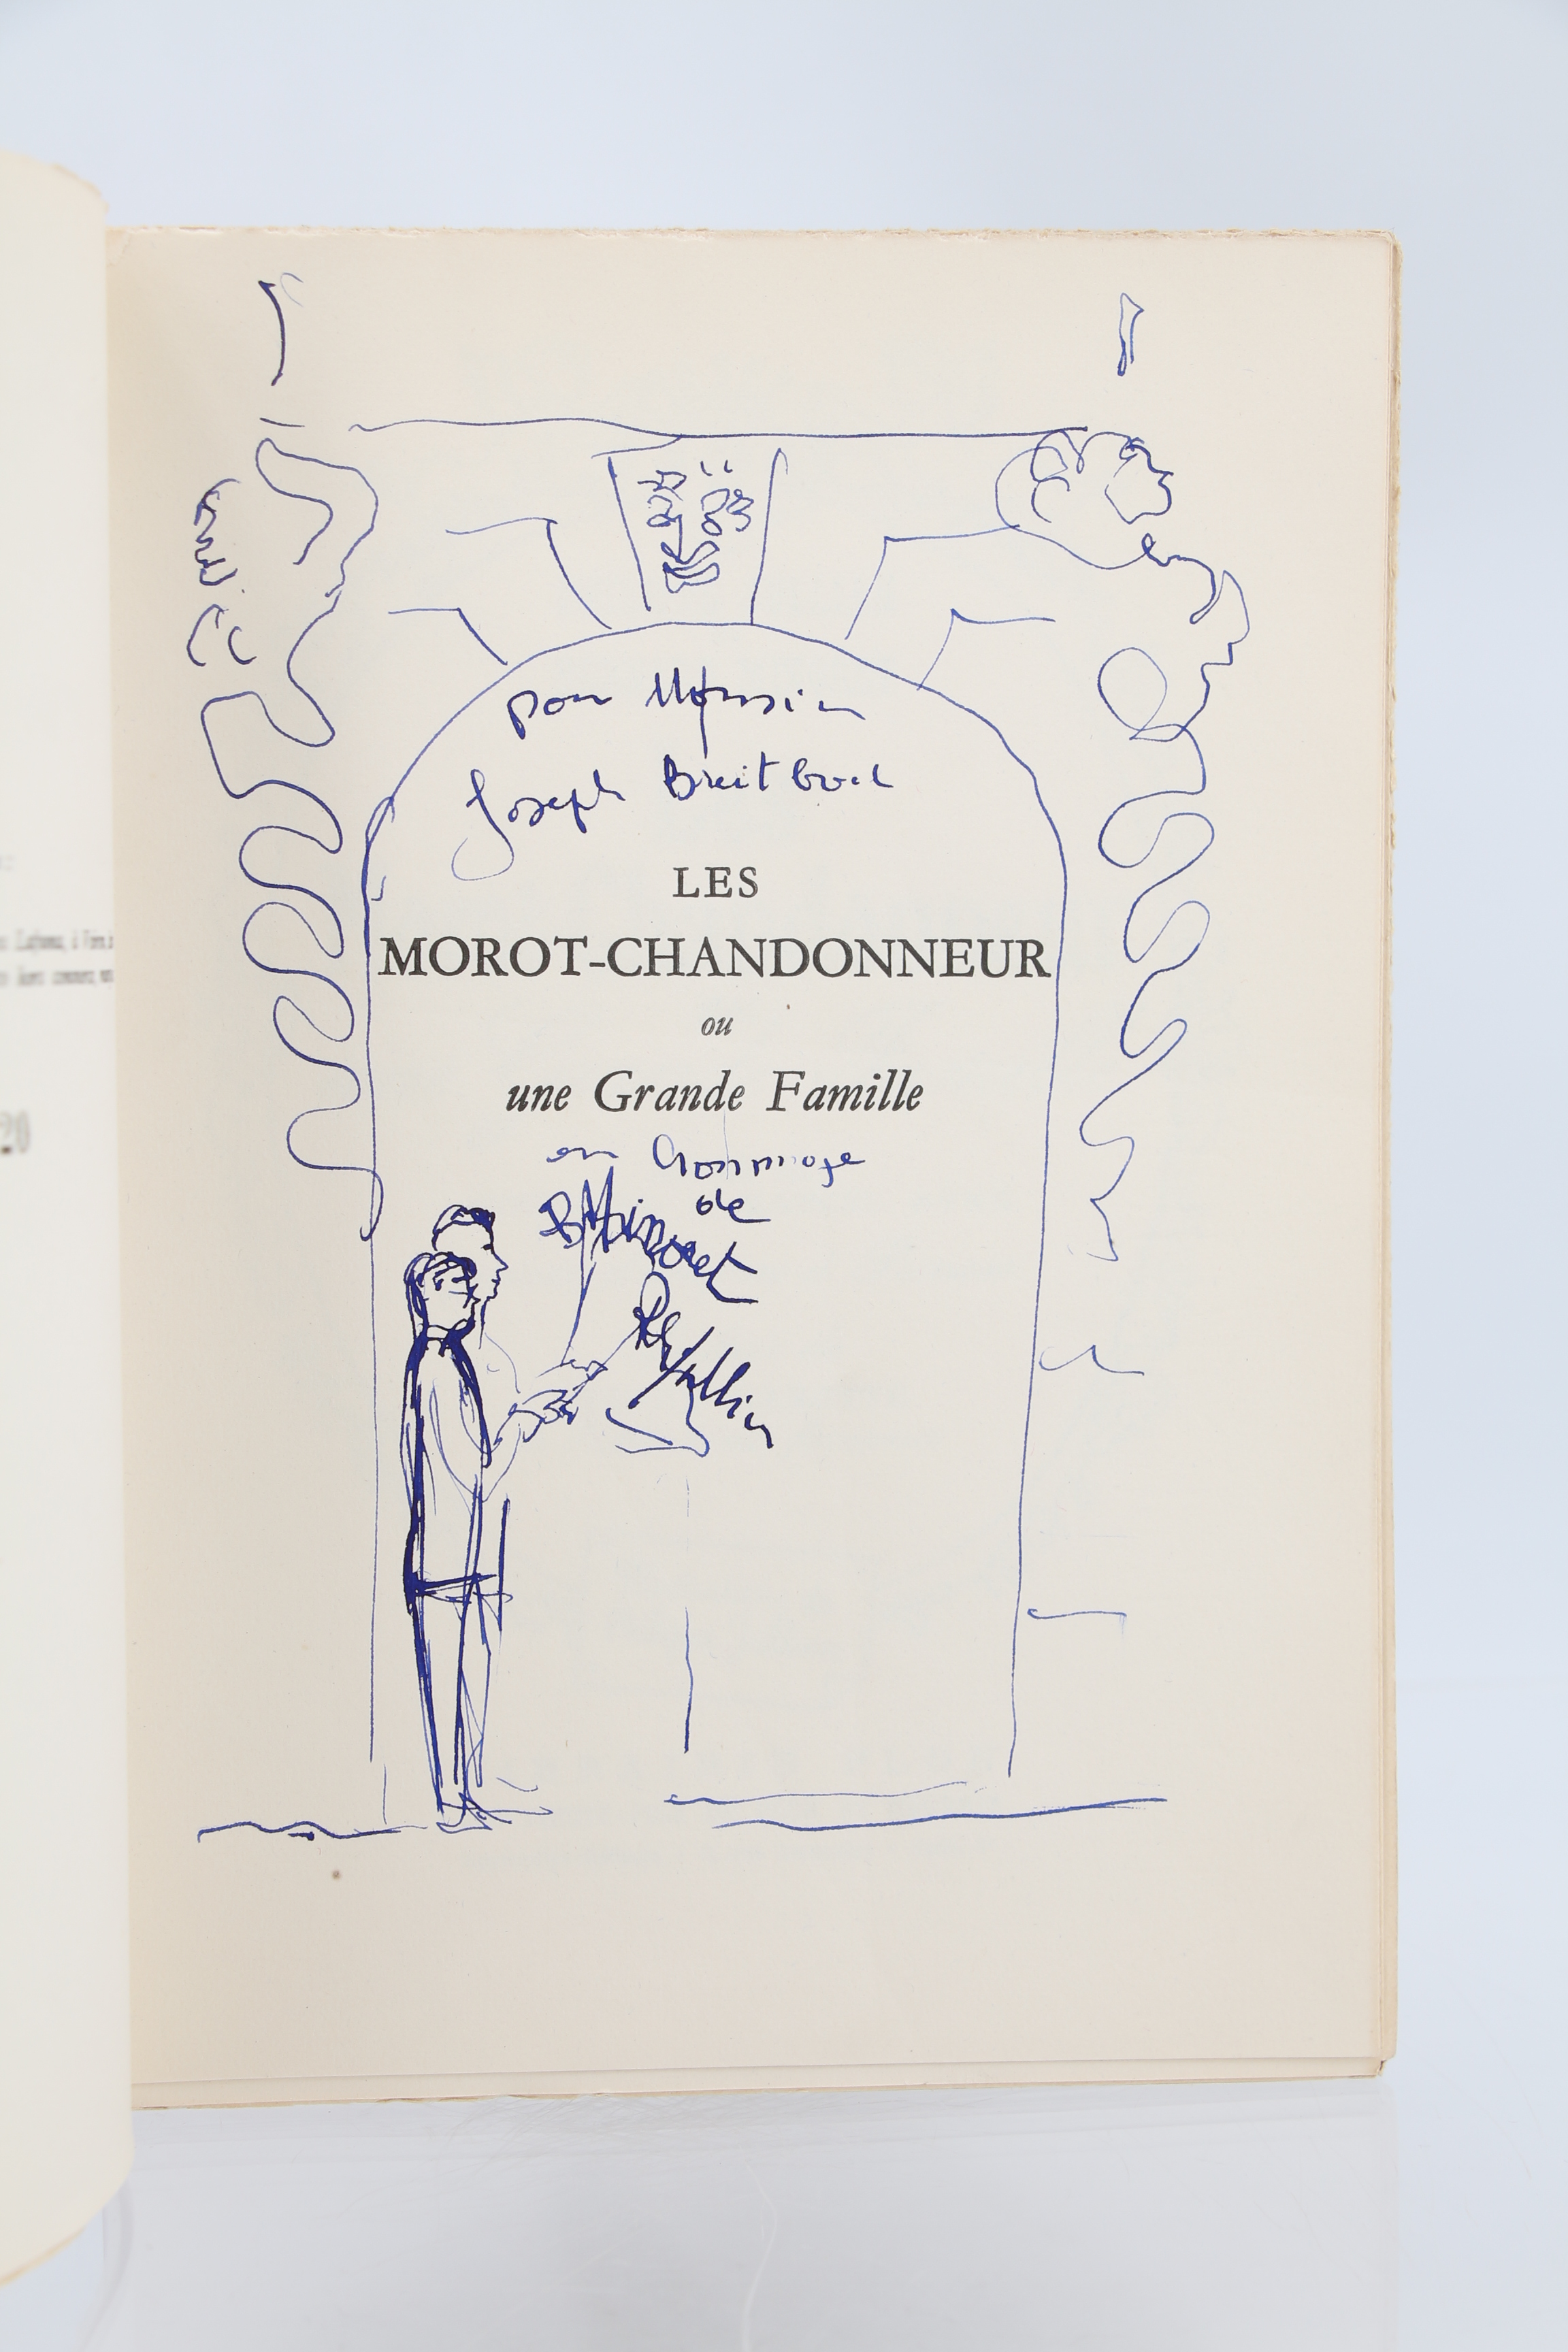 pour Monsieur
Joseph Breitbach
LES
MOROT-CHANDONNEUR
ou
une Grande Famille
en hommage
de
B Minoret
Ph Jullian
20